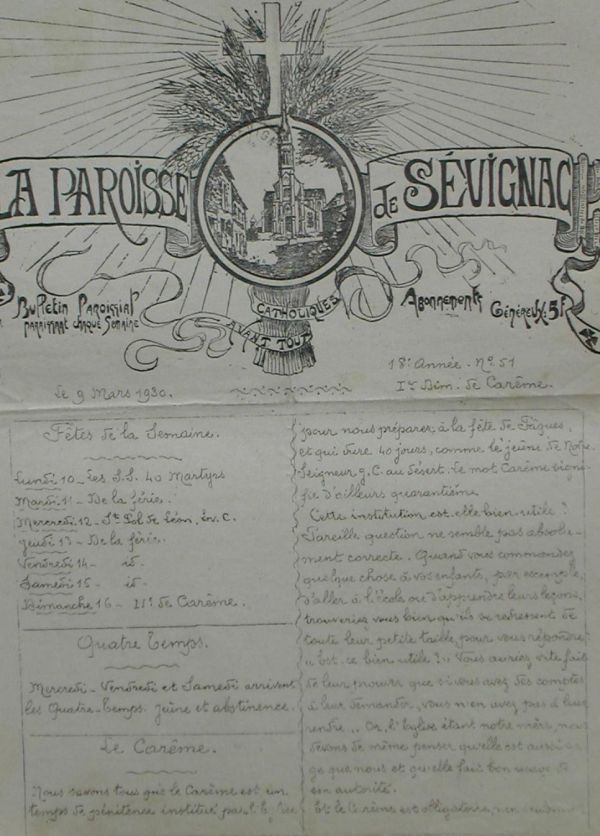 LA PAROISSE
de SÉVIGNAC
Bulletin Paroissial
paraissant chaque Semaine
CATHOLIQUES
AVANT TOUT
Abonnements Généreux: 5F
18e Année - No. 51
Le 9 Mars 1930.
Ier Dim. de Carême.
Fêtes de la Semaine.
Lundi 10 - les S.S. 40 Martyrs
Mardi 11 - De la férie.
Mercredi 12 - St Pol de Léon, Ev. C.
Jeudi 13 - De la férie.
Vendredi 14 - id-
Samedi 15 - id-
Dimanche 16 - IIe de Carême.
Quatre Temps.
Mercredi - Vendredi et Samedi arrivent
les Quatre-Temps. jeûne et abstinence.
Le Carême.
Nous savons tous que le Carême est un
temps de pénitence institué par l'Eglise
pour nous préparer à la fête de Pâques,
et qui dure 40 jours, comme le jeûne de Notre
Seigneur J.C. au désert. Le mot Carême signi-
fie d'ailleurs quarantième
Cette institution est-elle bien utile?
Pareille question ne semble pas absolu-
ment correcte. Quand vous commandez
quelque chose à vos enfants, par exemple,
d'aller à l'école ou d'apprendre leurs leçons,
trouveriez vous bien qu'ils se redressent de
toute leur petite taille pour vous répondre:
"Est-ce bien utile?" Vous auriez vite fait
de leur prouver que si vous avez des comptes
à leur demander, vous n'en avez pas à leur
rendre... Or, l'Eglise étant notre mère, nous
devons de même penser qu'elle est aussi sa-
ge que nous et qu'elle fait bon usage de
son autorité.
Et le Carême est obligatoire,